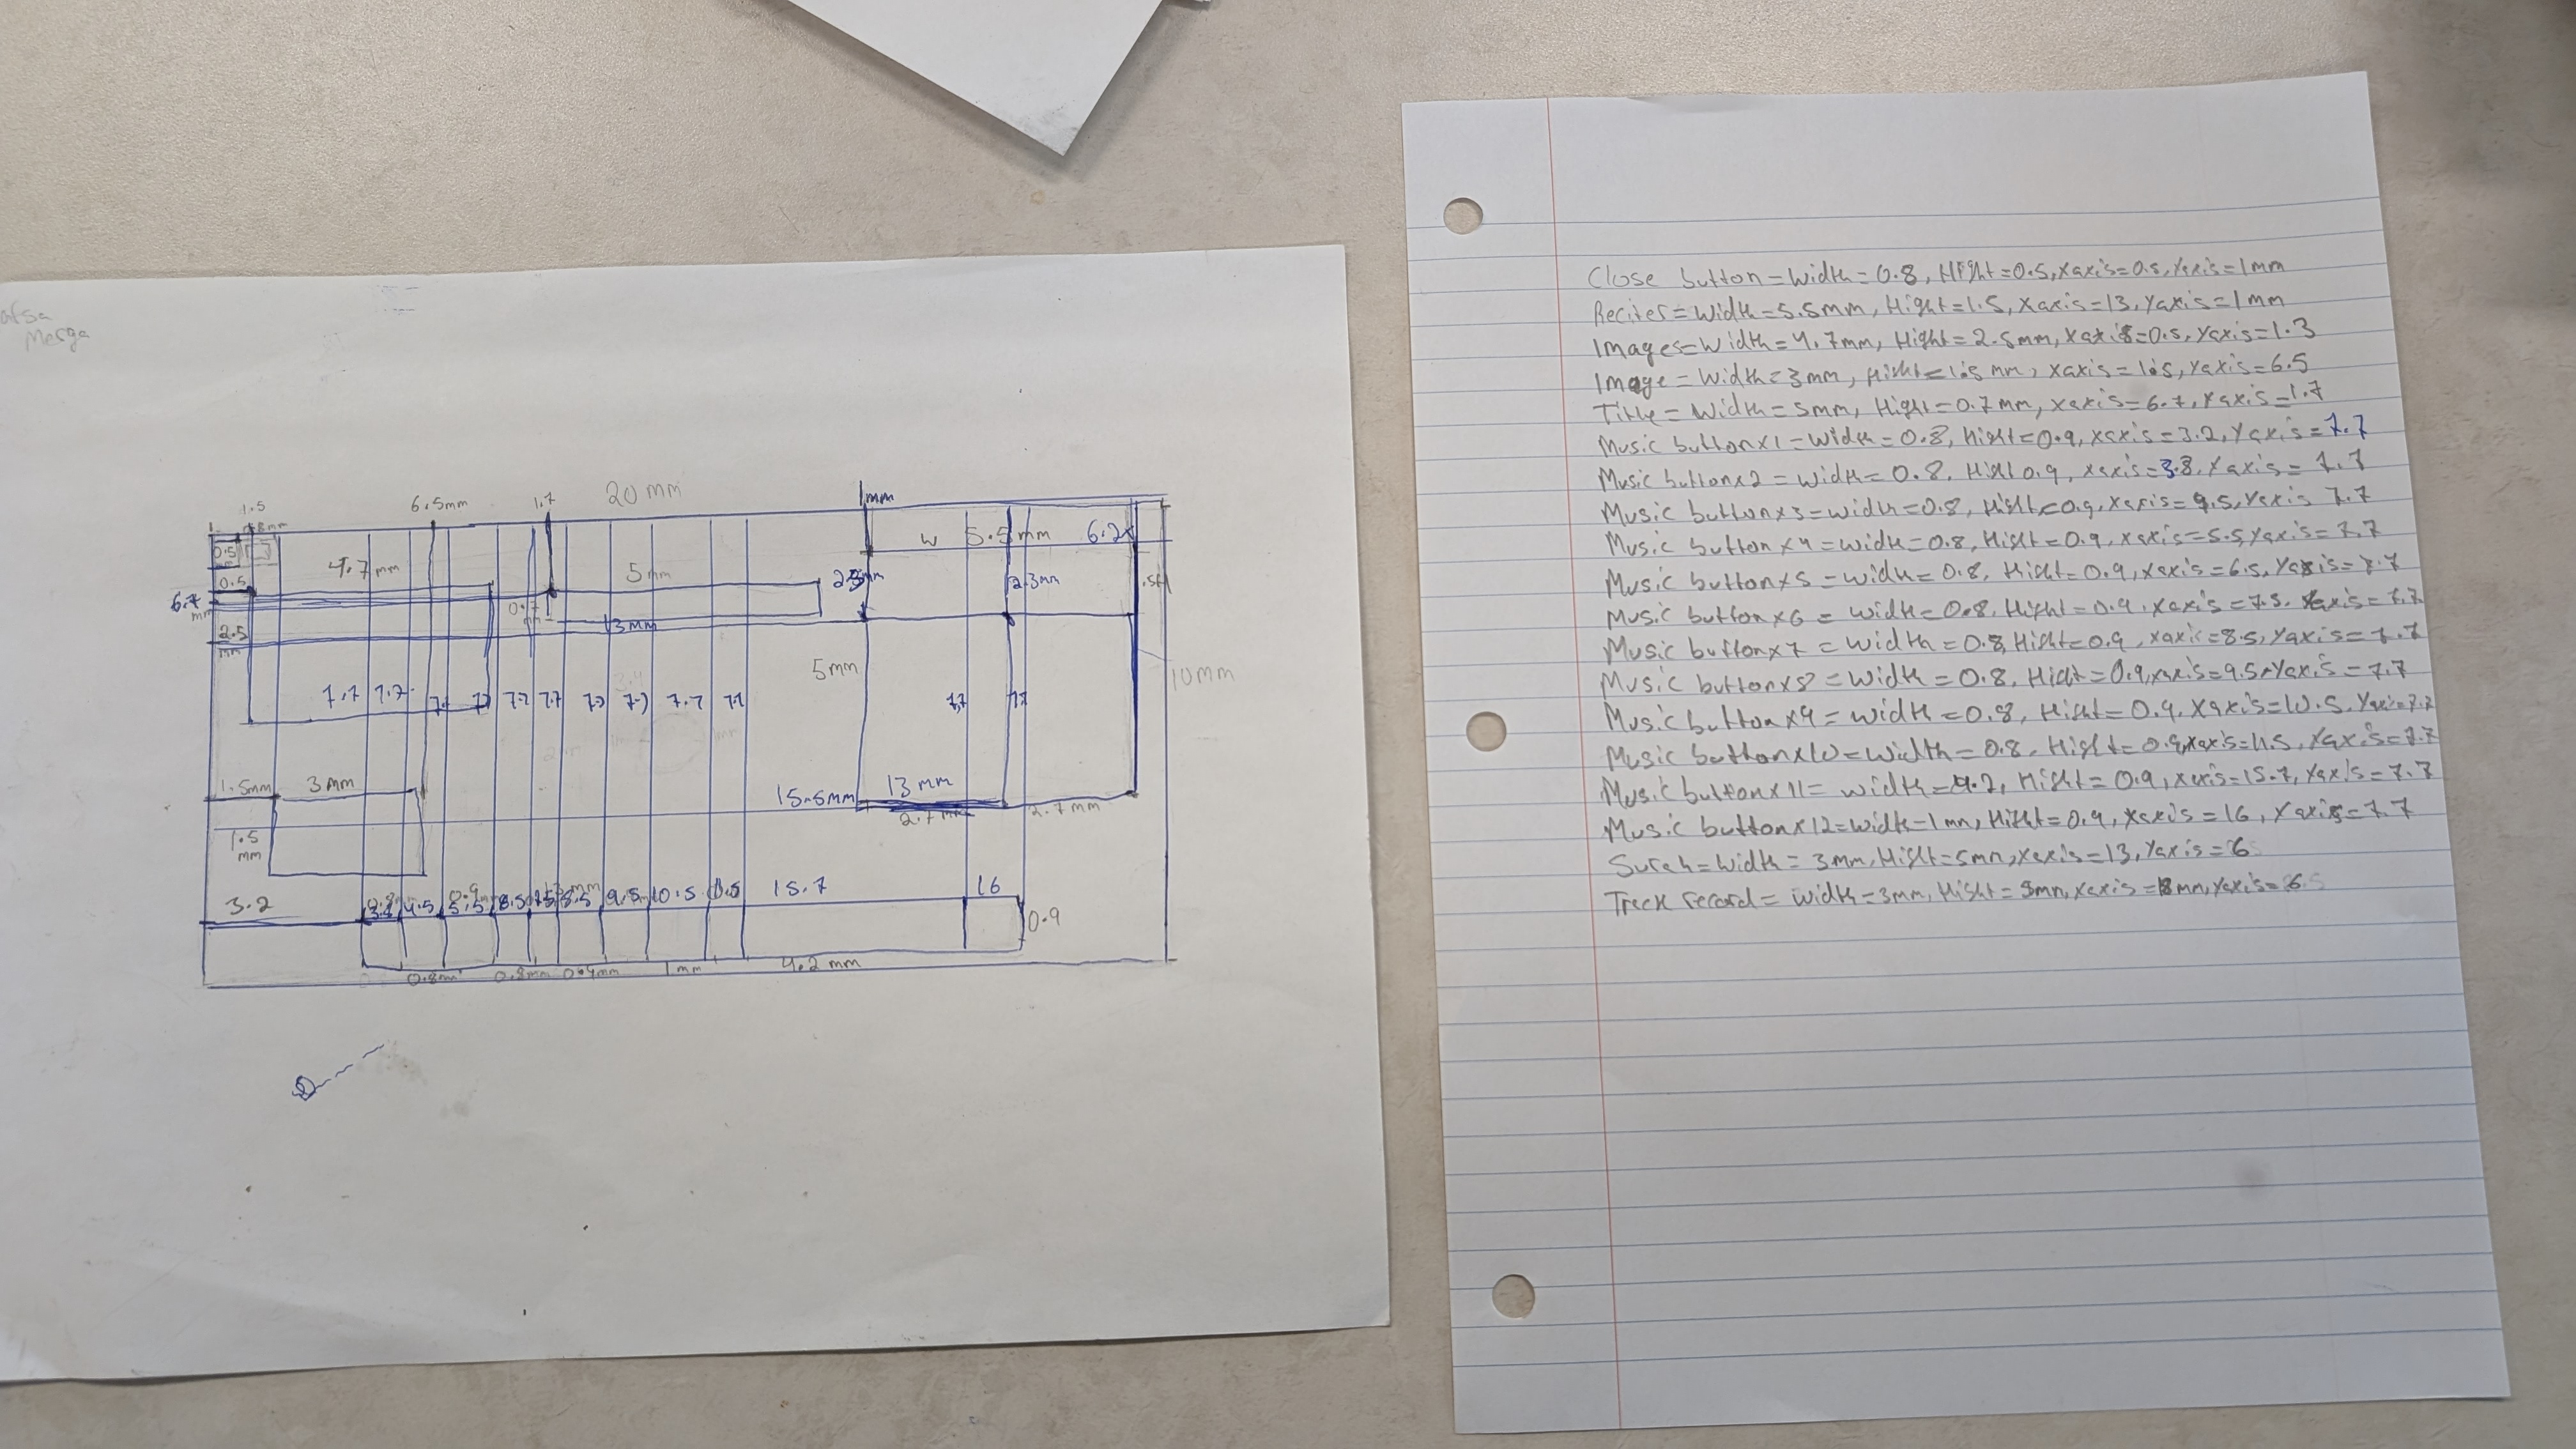 Merga
1.5
6.5mm
1.7
20 mm
1mm
0.5
4.7 mm
5mm
w 5.5 mm 6.2
0.5
2.3mm
6.7
mm
0.7
mm
13mm
2.5
mm
5mm
10mm
7.7 7.7 7.7 7.7 7.7 7.7 7.7 7.7 7.7
7.7
1.5mm 3mm
15.5mm 13 mm
2.7mm 2.7mm
1.5
mm
3.2
4.5 5.5 8.5 9.5 10.5 15.7 16
0.9
0.8m 0.8mm 1mm 4.2 mm
Close button = Width = 0.8, Hight = 0.5, Xaxis = 0.5, Yaxis = 1mm
Reciter = Width = 5.5mm, Hight = 1.5, Xaxis = 13, Yaxis = 1mm
Images = Width = 4.7mm, Hight = 2.5mm, Xaxis = 0.5, Yaxis = 1.3
Image = Width = 3mm, Hight = 1.5 mm, xaxis = 1.5, Yaxis = 6.5
Title = Width = 5mm, Hight = 0.7 mm, xaxis = 6.7, Yaxis = 1.7
Music buttonx1 = Width = 0.8, Hight = 0.9, xaxis = 3.2, Yaxis = 7.7
Music buttonx2 = Width = 0.8, Hight 0.9, xaxis = 3.8, Yaxis = 7.7
Music buttonx3 = width = 0.8, Hight = 0.9, Xaxis = 9.5, Yaxis 7.7
Music button x4 = width = 0.8, Hight = 0.9, xaxis = 5.5, Yaxis = 7.7
Music buttonx5 = width = 0.8, Hight = 0.9, xaxis = 6.5, Yaxis = 7.7
Music buttonx6 = width = 0.8, Hight = 0.9, xaxis = 7.5, Yaxis = 7.7
Music buttonx7 = width = 0.8, Hight = 0.9, xaxis = 8.5, Yaxis = 7.7
Music buttonx8 = Width = 0.8, Hight = 0.9, xaxis = 9.5, Yaxis = 7.7
Music buttonx9 = width = 0.8, Hight = 0.9, Xaxis = 10.5, Yaxis = 7.7
Music buttonx10 = width = 0.8, Hight = 0.9, xaxis = 11.5, Yaxis = 7.7
Music buttonx11 = width = 4.2, Hight = 0.9, xaxis = 15.7, Yaxis = 7.7
Music buttonx12 = width = 1mm, Hight = 0.9, xaxis = 16, Yaxis = 7.7
Surah = width = 3mm, Hight = 5mm, xaxis = 13, Yaxis = 6
Track record = width = 3mm, Hight = 5mm, xaxis = 18mm, yaxis = 6.5